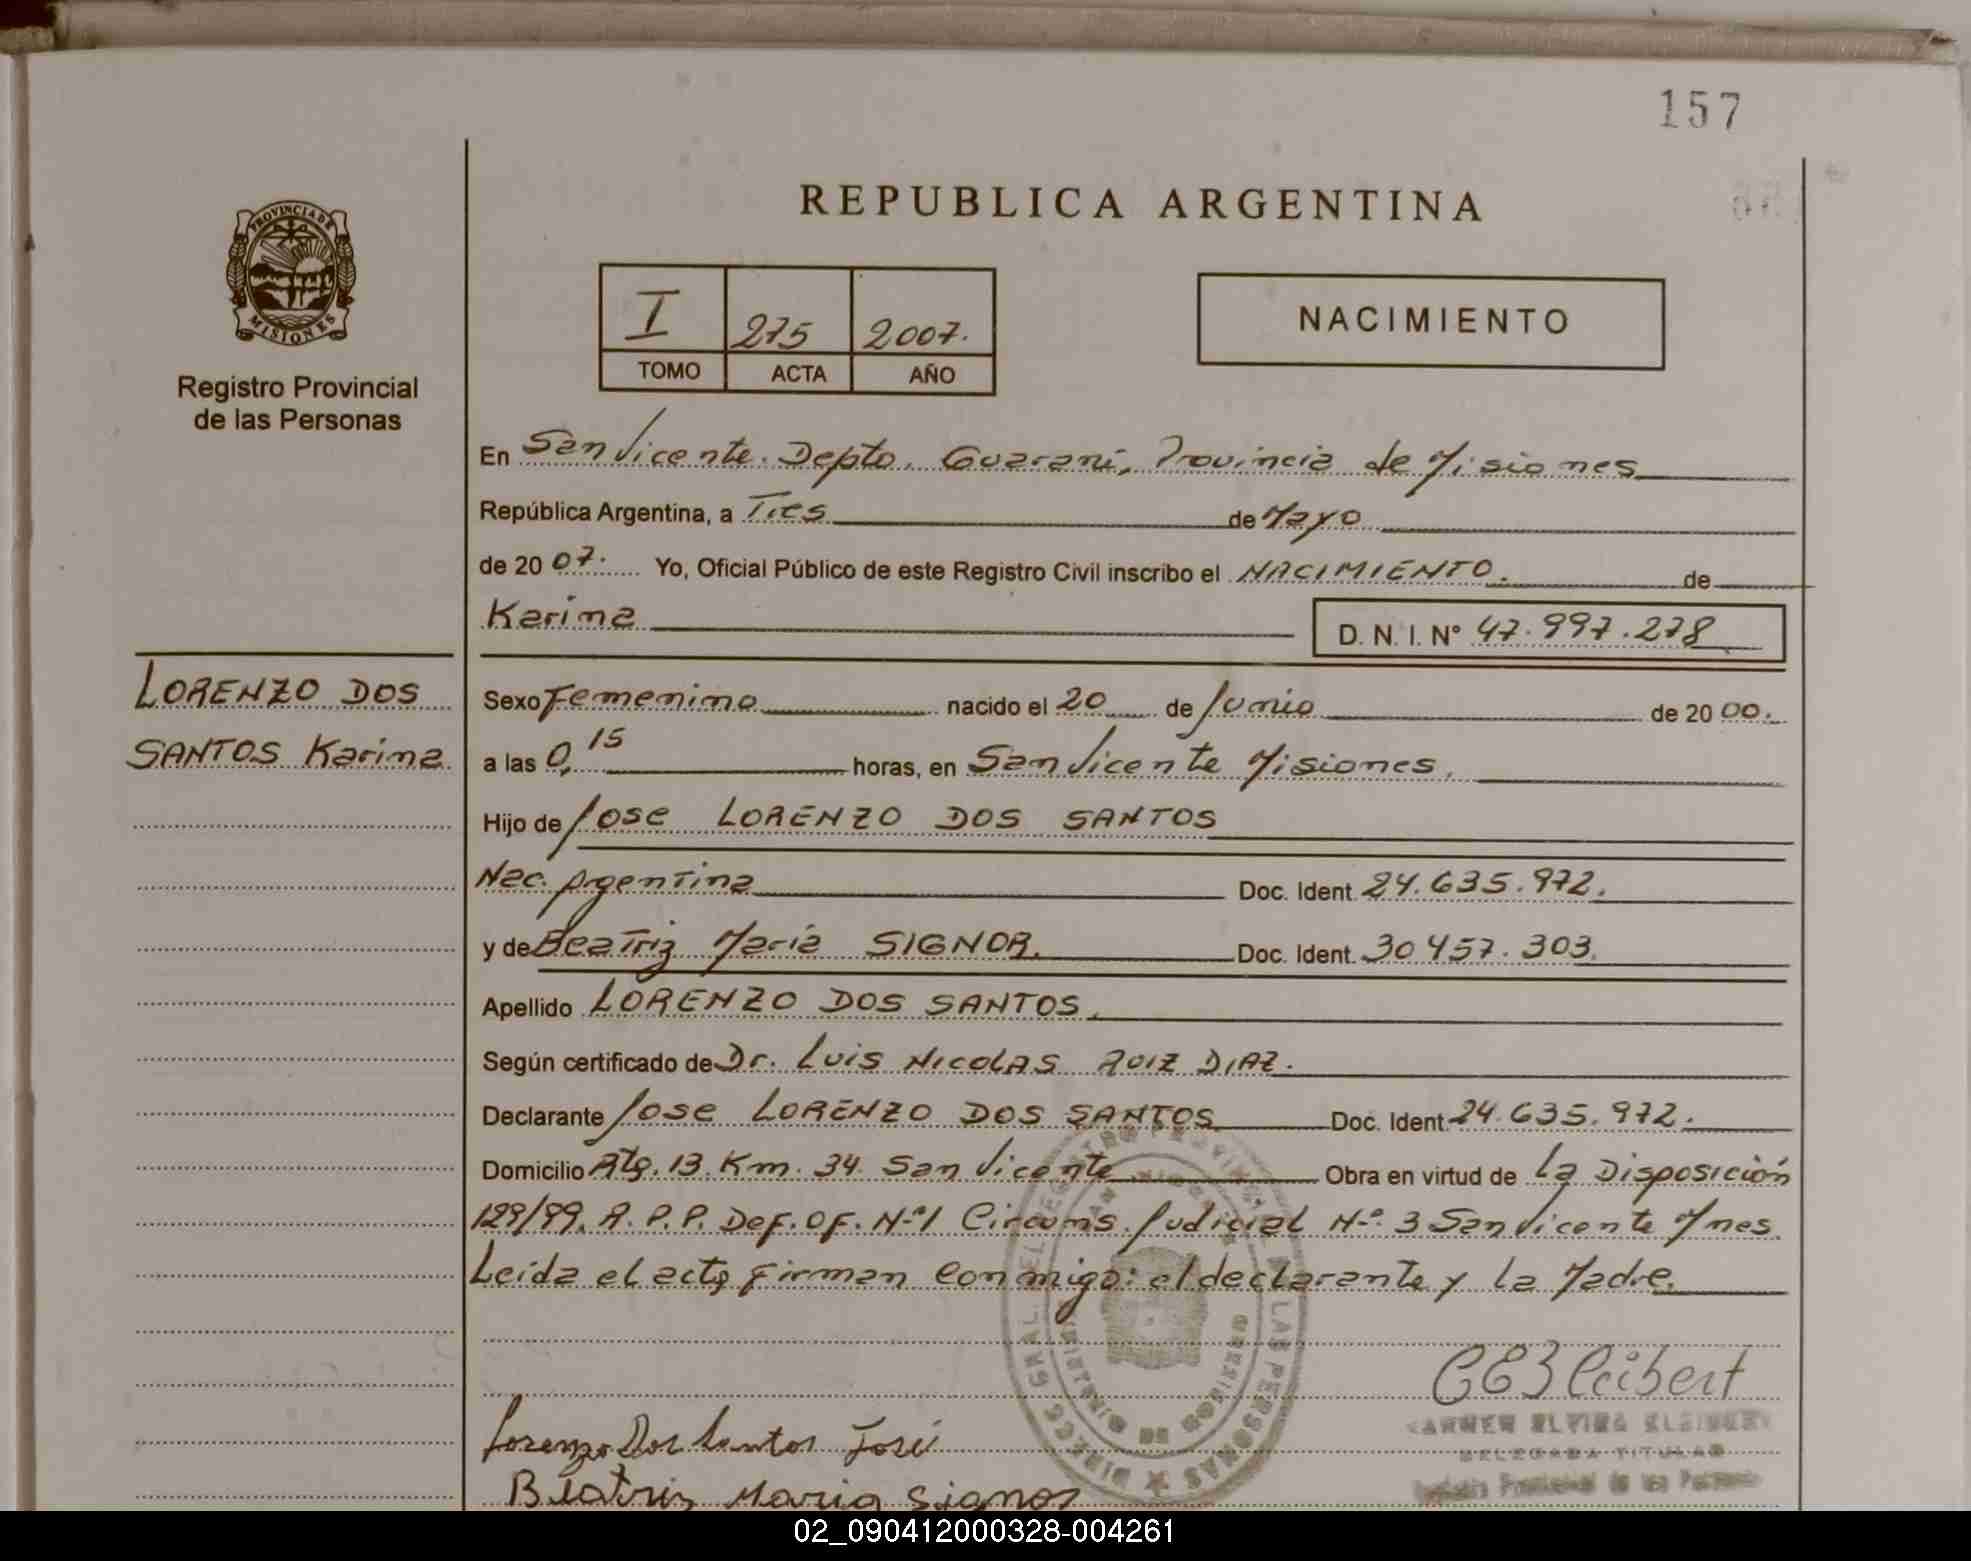 157
PROVINCIA DE
MISIONES
Registro Provincial
de las Personas
REPUBLICA ARGENTINA
I 275 2007.
TOMO ACTA AÑO
NACIMIENTO
En San Vicente. Depto. Guaraní, Provincia de Misiones
República Argentina, a Tres de Mayo
de 2007. Yo, Oficial Público de este Registro Civil inscribo el NACIMIENTO. de
Karina D. N. I. N° 47.997.278
LORENZO DOS
SANTOS Karina
Sexo Femenino nacido el 20 de Junio de 2000.
a las 0,15 horas, en San Vicente Misiones.
Hijo de Jose LORENZO DOS SANTOS
Nac. Argentina Doc. Ident. 24.635.972.
y de Beatriz María SIGNOR. Doc. Ident. 30457.303.
Apellido LORENZO DOS SANTOS.
Según certificado de Dr. Luis NICOLAS RUIZ DIAZ.
Declarante Jose LORENZO DOS SANTOS Doc. Ident. 24.635.972.
Domicilio Rta. 13. Km. 34. San Vicente Obra en virtud de la Disposición
129/99. R.P.P. Def. Of. N-º1 Circuns. Judicial N-º. 3 San Vicente Mnes.
Leída el acta firman conmigo: el declarante y la Madre.
Lorenzo Dos Santos José
Beatriz Maria Signor
DELEGADA TITULAR
02_090412000328-004261